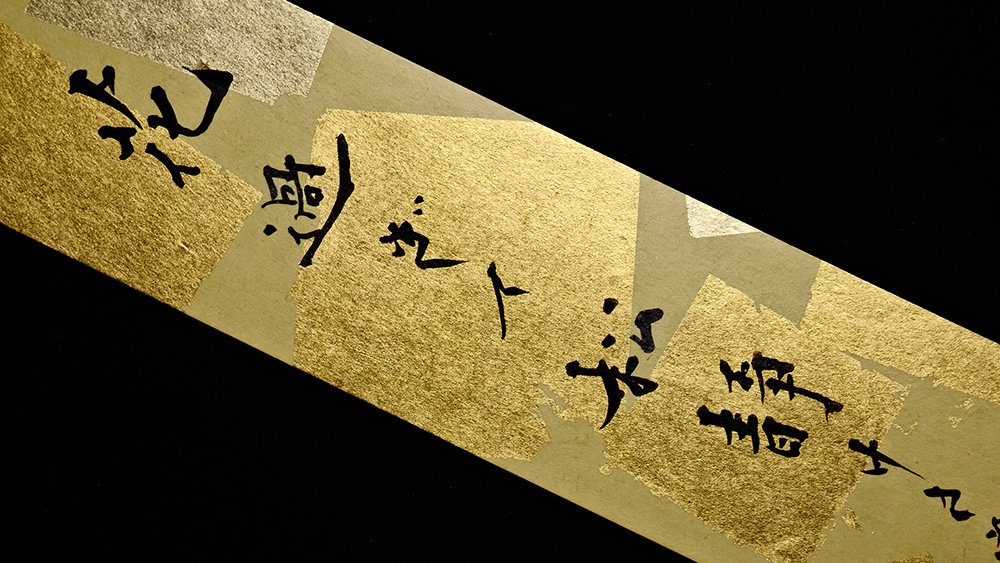 花過ぎて松静